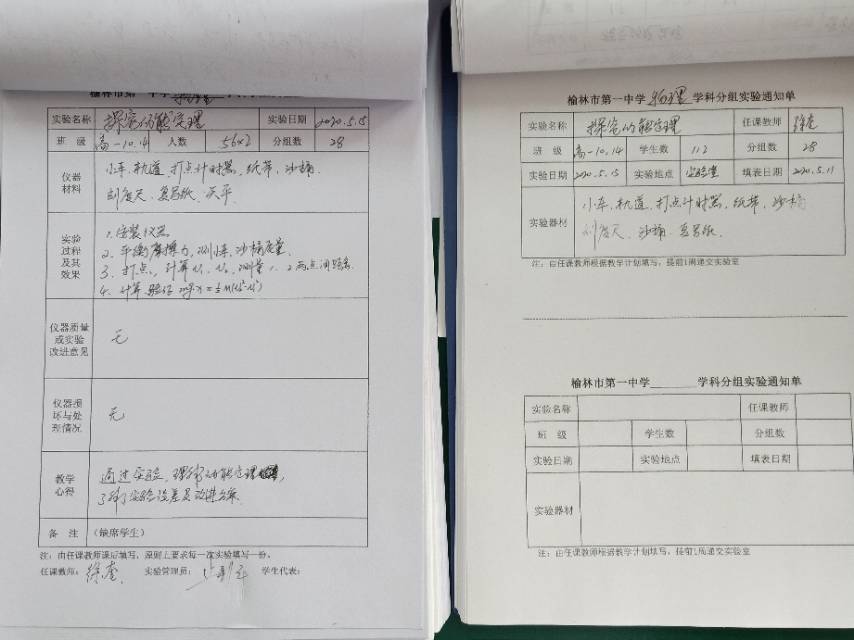 榆林市第一中学 物理
实验名称 探究动能定理 实验日期 2020.5.15
班级 高一10.14 人数 56×2 分组数 28
仪器材料 小车、轨道、打点计时器、纸带、沙桶
刻度尺、复写纸、天平
实验过程及其效果
1、安装仪器
2、平衡摩擦力,测小车、沙桶质量
3、打点,计算V₁、V₂,测量1、2两点间距离
4、计算、验证
仪器质量或实验改进意见 无
仪器损坏与处理情况 无
教学心得 通过实验,理解动能定理
了解了实验误差及改进方案
备注 (缺席学生)
注:由任课教师课后填写,原则上要求每一次实验填写一份。
任课教师: 徐奎 实验管理员: 学生代表:
榆林市第一中学 物理 学科分组实验通知单
实验名称 探究动能定理 任课教师 徐奎
班级 高一10.14 学生数 112 分组数 28
实验日期 2020.5.15 实验地点 实验室 填表日期 2020.5.11
实验器材 小车、轨道、打点计时器、纸带、沙桶
刻度尺、沙桶、复写纸
注:由任课教师根据教学计划填写,提前1周递交实验室
榆林市第一中学______学科分组实验通知单
实验名称 任课教师
班级 学生数 分组数
实验日期 实验地点 填表日期
实验器材
注:由任课教师根据教学计划填写,提前1周递交实验室